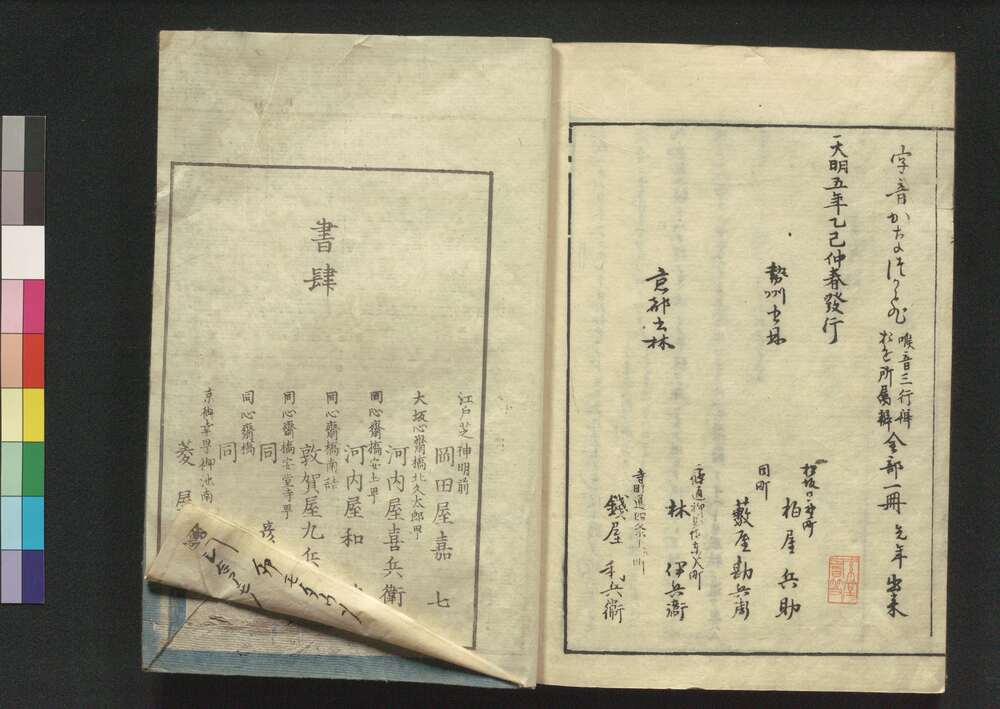 字音かなつかひ 喉音三行辨 おを所属辨 全部一冊 先年出来
天明五年乙巳仲春發行
勢州書林
松坂日野町
柏屋兵助
同町
藪屋勘兵衛
京都書林
林伊兵衛
銭屋利兵衛
書肆
江戸芝神明前
岡田屋嘉七
大坂心齋橋北久太郎町
河内屋喜兵衛
同心齋橋安土町
河内屋和
同心齋橋南詰
敦賀屋九兵
同心齋橋安堂寺町
同
同心齋橋
同
京御幸町御池南
菱屋